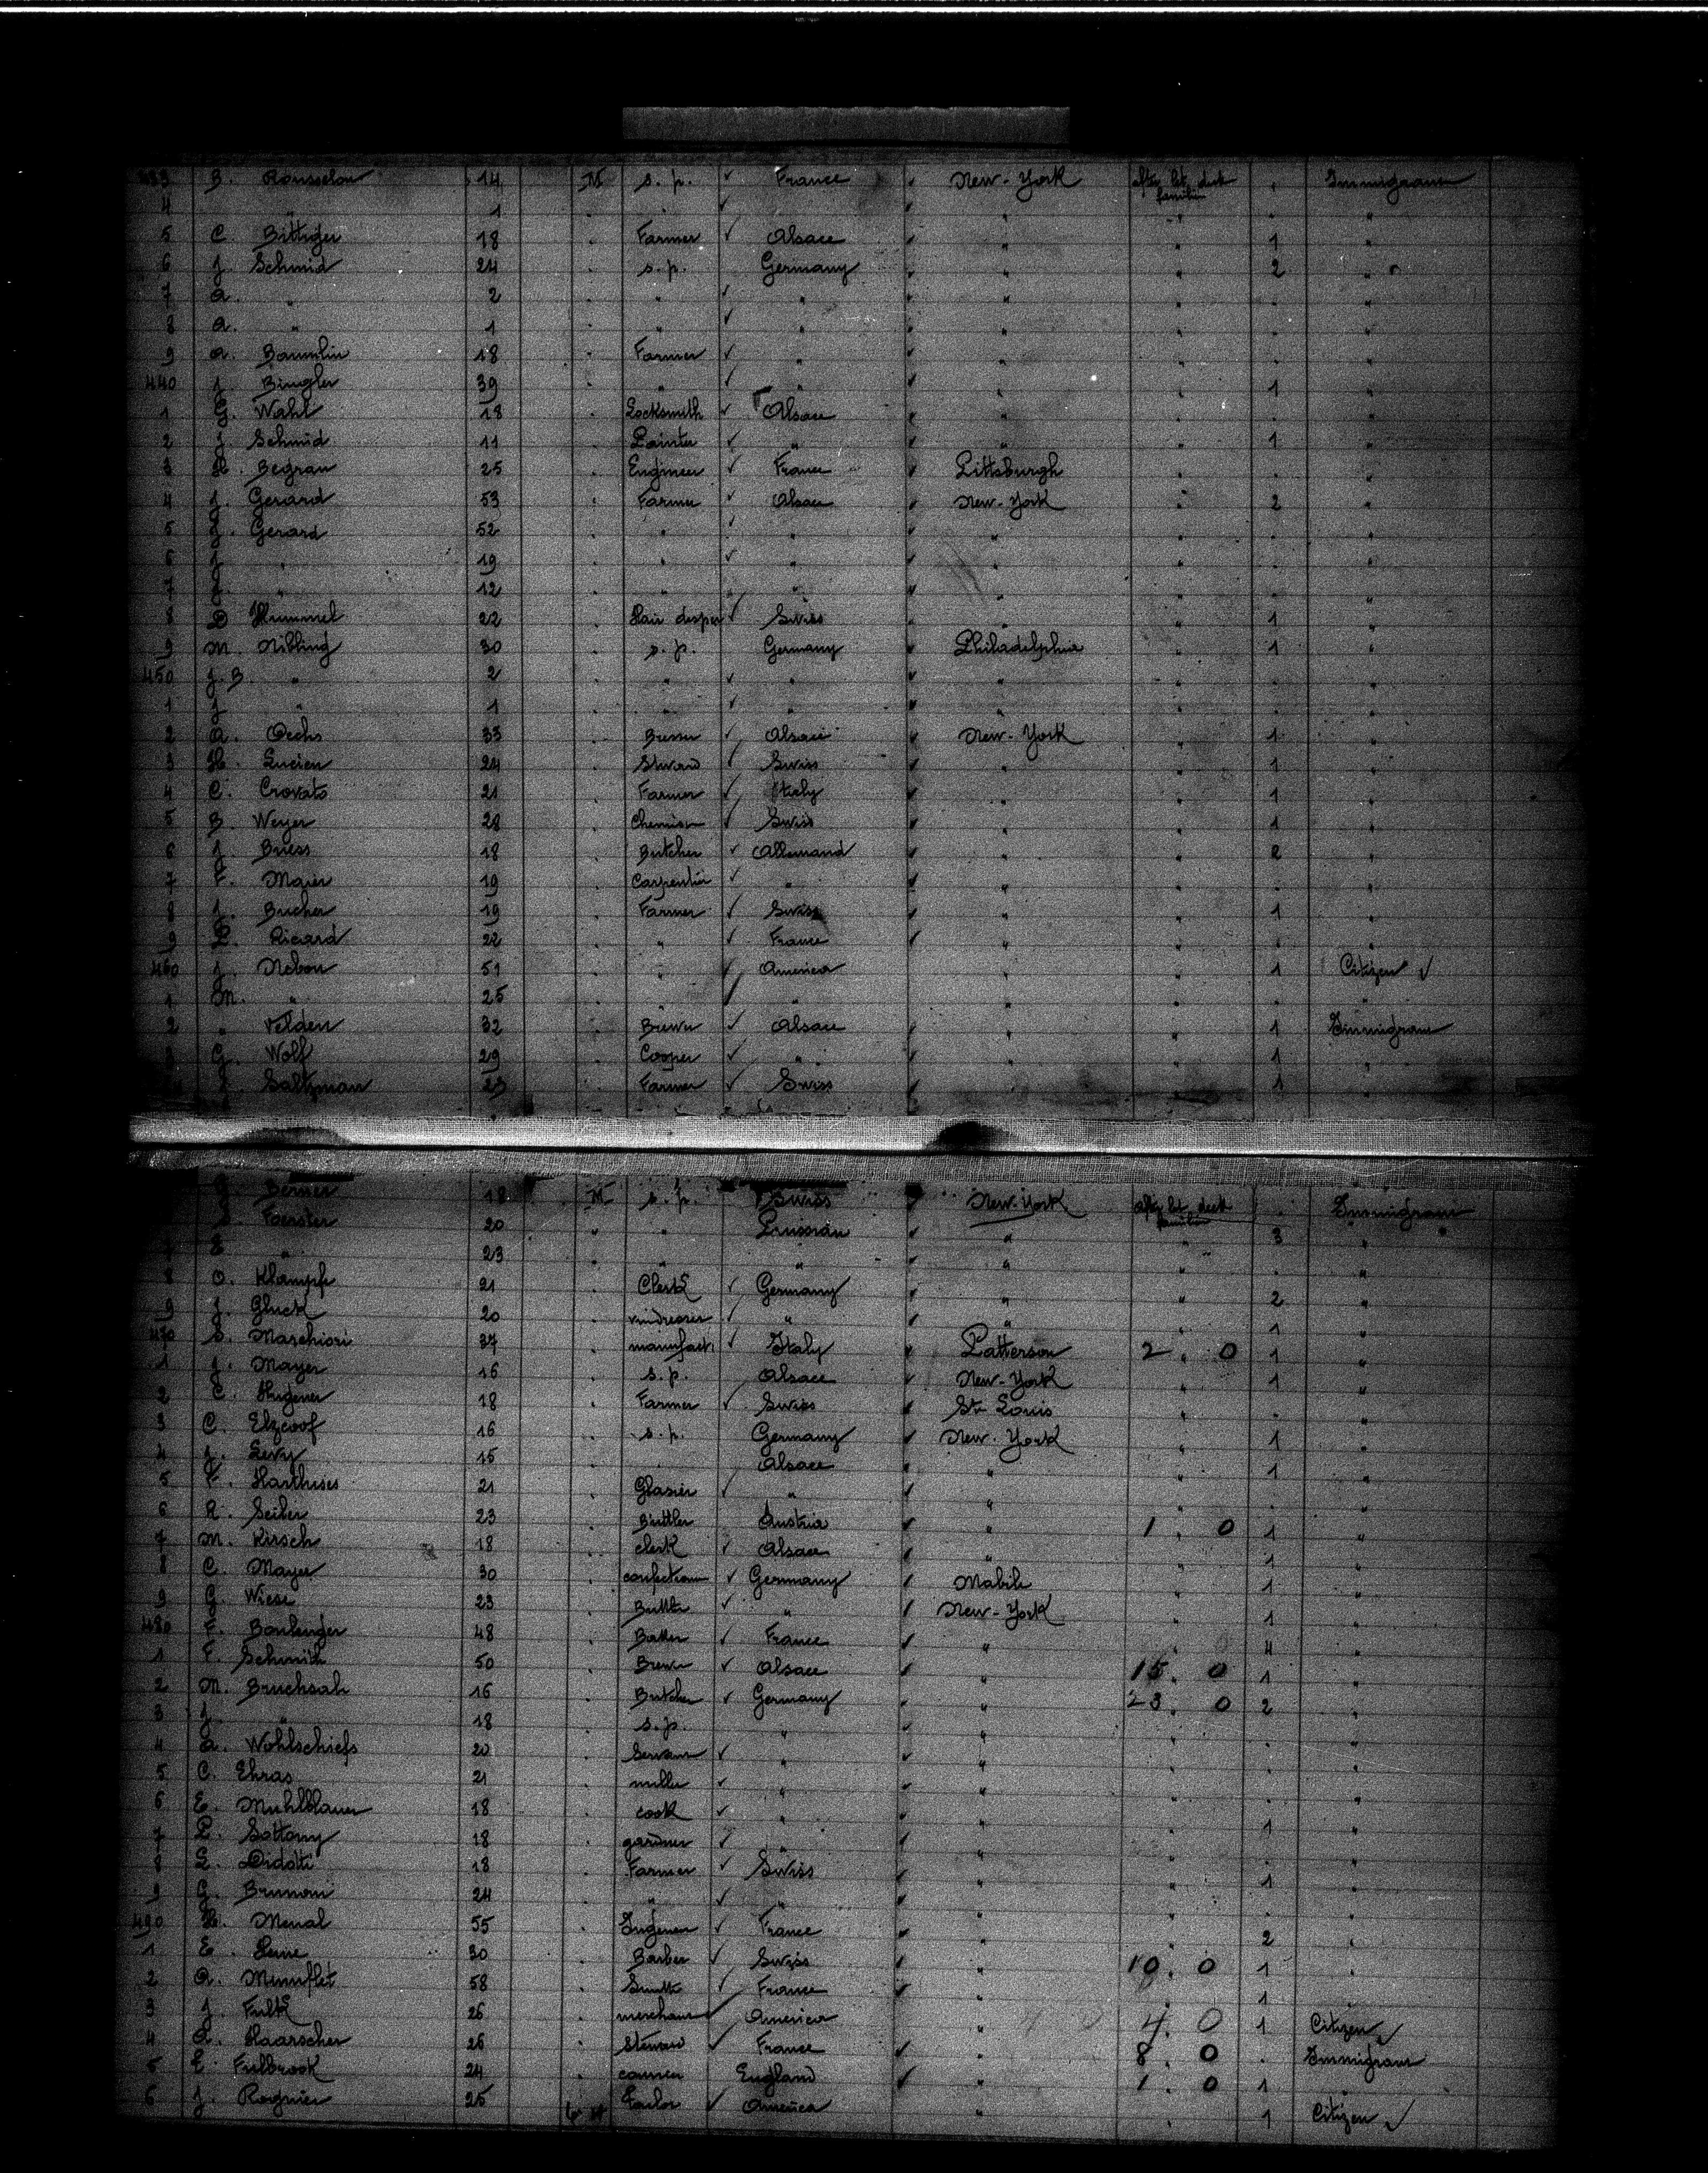 433 B. Rousselon 14 M s. p. ✓ France ✓ New-York after let. deck families . Immigrant
4 " 1 . . ✓ . ✓ " " . "
5 C. Bittiger 18 . Farmer ✓ Alsace ✓ " " 1 "
6 J. Schmid 24 . s. p. Germany ✓ " " 2 "
7 A. " 2 . " ✓ " ✓ " " . "
8 A. " 1 . " ✓ " ✓ " " . "
9 A. Baumlin 18 . Farmer ✓ " ✓ " " . "
440 J. Bingler 39 . " ✓ " ✓ " " 1 "
1 G. Wahl 18 . Locksmith ✓ Alsace ✓ " " . "
2 J. Schmid 11 . Painter ✓ " ✓ " " 1 "
3 H. Begran 25 . Engineer ✓ France ✓ Pittsburgh " . "
4 J. Gerard 53 . Farmer ✓ Alsace ✓ New-York " 2 "
5 J. Gerard 52 . " ✓ " ✓ " " . "
6 J. " 19 . " ✓ " ✓ " " . "
7 " 12 . " " ✓ " " . "
8 D Hummel 22 . Hair ✓ Swiss ✓ " " 1 "
9 M. Nibling 30 . s. p. Germany ✓ Philadelphia " 1 "
450 J. B. " 2 . " ✓ " ✓ " " . "
1 J " 1 . " ✓ " ✓ " " . "
2 A. Oechs 33 . ✓ Alsace ✓ New-York " 1 "
3 H. Lucien 24 . ✓ Swiss ✓ " " 1 "
4 C. Crovato 21 . Farmer ✓ Italy ✓ " " 1 "
5 B. Weyer 28 . ✓ Swiss ✓ " " 1 "
6 J. Buess 18 . Butcher ✓ Allemand ✓ " " 2 "
7 F. Maier 19 . Carpentier ✓ " ✓ " " . "
8 J. Bucher 19 . Farmer ✓ Swiss ✓ " " 1 "
9 Ricard 22 . " ✓ France ✓ " " . "
460 J. Nebon 51 . " ✓ America " " 1 Citizen ✓
1 M. " 25 . " ✓ " " " . "
2 " Velden 32 . Brewer ✓ Alsace ✓ " " 1 Immigrant
3 G. Wolf 29 . Cooper ✓ " ✓ " " 1
Saltzman 23 . Farmer ✓ Swiss ✓ 1
Berner 18 M s. p. Swiss ✓ New-York after let. deck families . Immigrant
Foerster 20 " " Prussian ✓ " " 3 "
7 E " 23 . " " ✓ " " . "
8 O. Klampfe 21 . Clerk ✓ Germany ✓ " " 2 "
9 J. Gluck 20 . ✓ " ✓ " " 1 "
470 S. Marchiori 37 . manufact. ✓ Italy ✓ Patterson 2 . 0 1 "
1 J. Mayer 16 . s. p. Alsace ✓ New-York " 1 "
2 C. Hugener 18 . Farmer ✓ Swiss ✓ St Louis " . "
3 C. Elzcoof 16 . s. p. Germany ✓ New-York " 1 "
4 J. Levy 15 . Alsace ✓ " " 1 "
5 F. Harthises 21 . Glasier ✓ " ✓ " " . "
6 R. Seiler 23 . Buttler Austria ✓ " 1 . 0 1 "
7 M. Kirsch 18 . clerk ✓ Alsace ✓ " " 1 "
8 C. Mayer 30 . ✓ Germany ✓ Mabile " 1 "
9 G. Wiese 23 . ✓ " ✓ New-York " 1 "
480 E. Boulenger 48 . ✓ France ✓ " " 4 "
1 F. Schmith 50 . Brewer ✓ Alsace ✓ " 15. 0 1 "
2 M. Bruchsah 16 . Butcher ✓ Germany ✓ " 23. 0 2 "
3 J " 18 . s. p. " ✓ " " . "
4 Wohlschiefs 20 . Servant ✓ " ✓ " " . "
5 C. Ehras 21 . miller ✓ " ✓ " " . "
6 E. Muhlblauer 18 . cook ✓ " ✓ " " 1 "
7 Sottony 18 . gardner ✓ " ✓ " " . "
8 L. Didotti 18 . Farmer ✓ Swiss ✓ " " 1 "
9 G. Brunoni 24 . " ✓ " ✓ " " . "
490 H. Menal 55 . ✓ France ✓ " " 2 "
1 E. 30 . Barber ✓ Swiss ✓ " 10. 0 1 "
2 A. Munflet 58 . ✓ France ✓ " " 1
3 J. Fulk 26 . merchant ✓ America " 4. 0 1 Citizen ✓
4 Haarscher 26 . Steward ✓ France ✓ " 8. 0 . Immigrant
5 E. Fulbrook 24 . England ✓ " 1. 0 1
6 J. Rognier 25 ✓ America " . 1 Citizen ✓